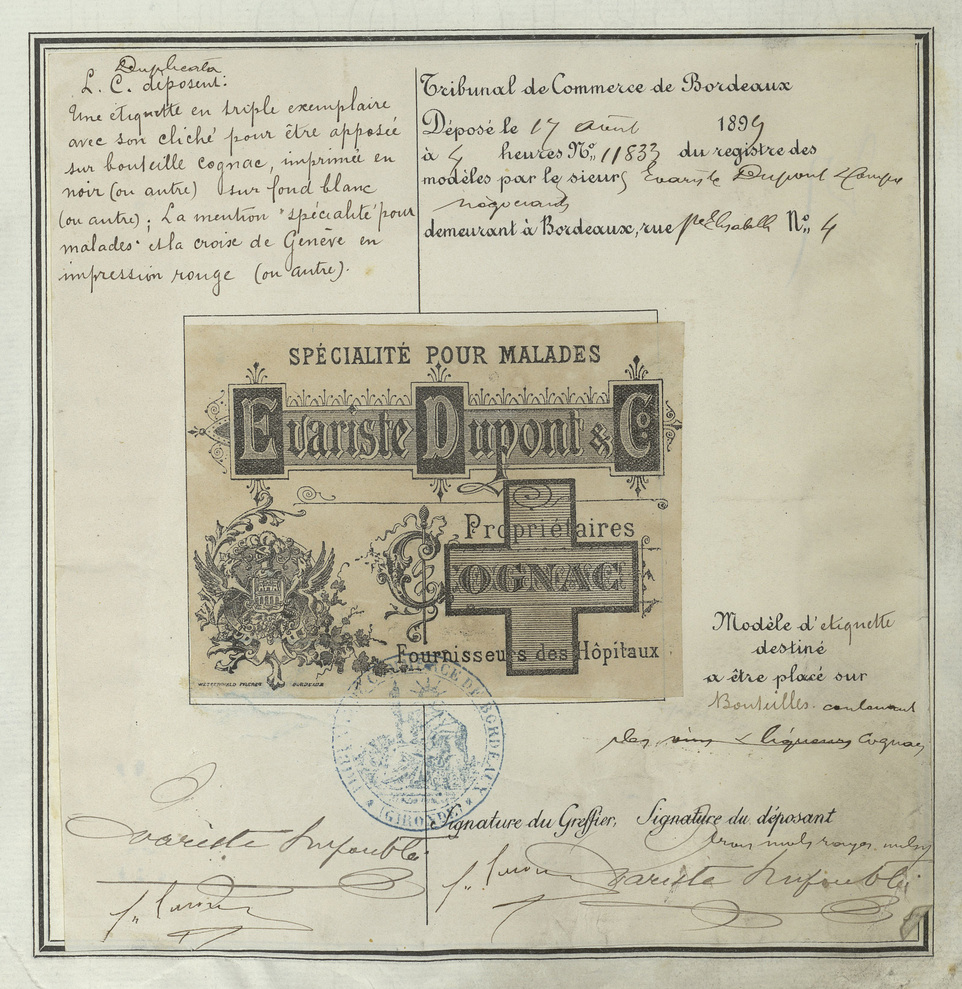 Duplicata
L. C. déposent:
Une étiquette en triple exemplaire
avec son cliché pour être apposée
sur bouteille cognac, imprimée en
noir (ou autre) sur fond blanc
(ou autre); La mention "spécialité pour
malades" et la croix de Genève en
impression rouge (ou autre).
Tribunal de Commerce de Bordeaux
Déposé le 17 août 1899
à 4 heures No. 11833 du registre des
modèles par les sieurs Evariste Dupont &
négociants
demeurant à Bordeaux, rue Ste Elisabeth No. 4
SPÉCIALITÉ POUR MALADES
Evariste Dupont & Co
Propriétaires
COGNAC
Fournisseurs des Hôpitaux
WETTERWALD FRÈRES BORDEAUX
Modèle d'etiquette
destiné
a être placé sur
Bouteilles contenant
des vins & liqueurs Cognac
DE COMMERCE DE BORDEAUX
(GIRONDE)
Signature du Greffier, Signature du déposant
trois mots rayés nuls
Evariste Dupont & Cie
Evariste Dupont & Cie